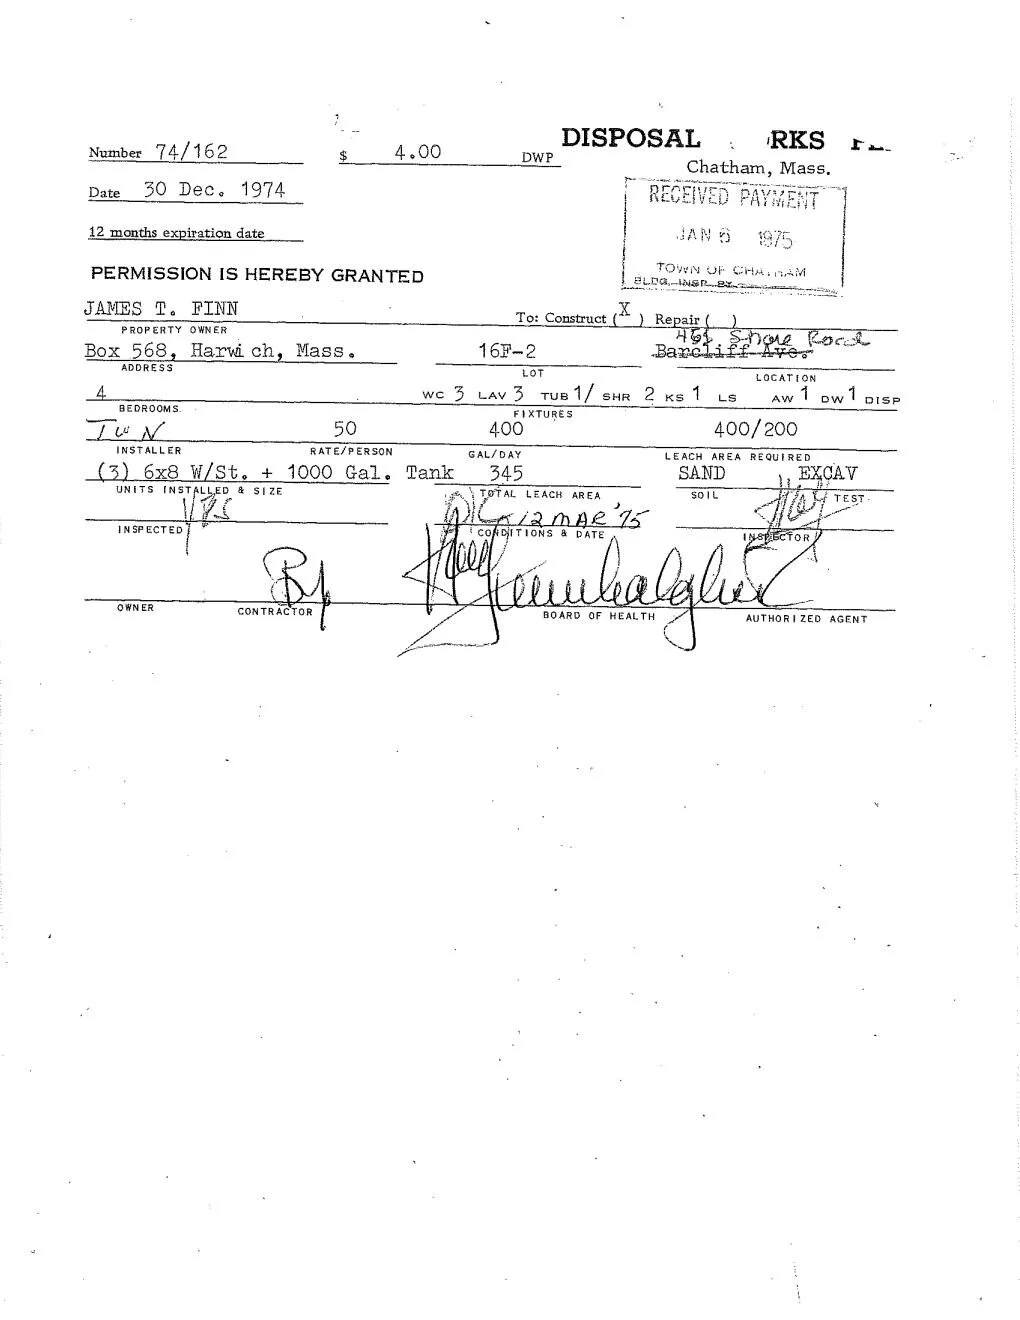 DISPOSAL RKS
Number 74/162 $ 4.00 DWP
Chatham, Mass.
Date 30 Dec. 1974
RECEIVED PAYMENT
JAN 6 1975
12 months expiration date
TOWN OF CHATHAM
BLDG. INSP. BY
PERMISSION IS HEREBY GRANTED
JAMES T. FINN To: Construct ( X ) Repair ( )
PROPERTY OWNER
Shore Road
Box 568, Harwich, Mass. 16F-2 Barcliff Ave.
ADDRESS LOT LOCATION
4 WC 3 LAV 3 TUB 1/ SHR 2 KS 1 LS AW 1 DW 1 DISP
BEDROOMS. FIXTURES
50 400 400/200
INSTALLER RATE/PERSON GAL/DAY LEACH AREA REQUIRED
(3) 6x8 W/St. + 1000 Gal. Tank 345 SAND EXCAV
UNITS INSTALLED & SIZE TOTAL LEACH AREA SOIL TEST
12 MAR '75
INSPECTED CONDITIONS & DATE INSPECTOR
By
OWNER CONTRACTOR BOARD OF HEALTH AUTHORIZED AGENT